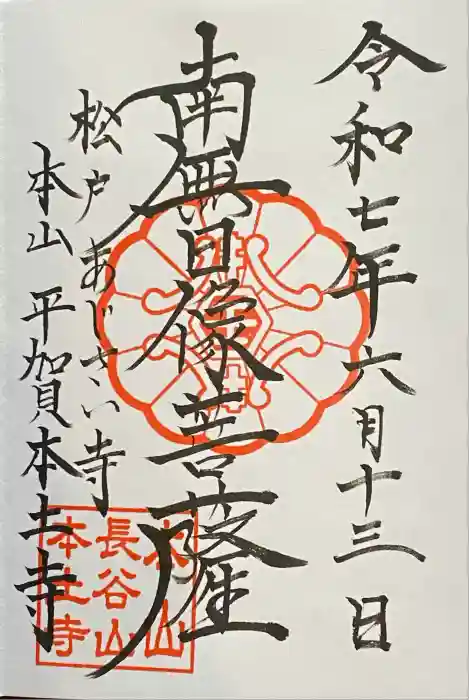 令和七年六月十三日
南無日像菩薩
松戸あじさい寺
本山 平賀本土寺
本山
長谷山
本土寺